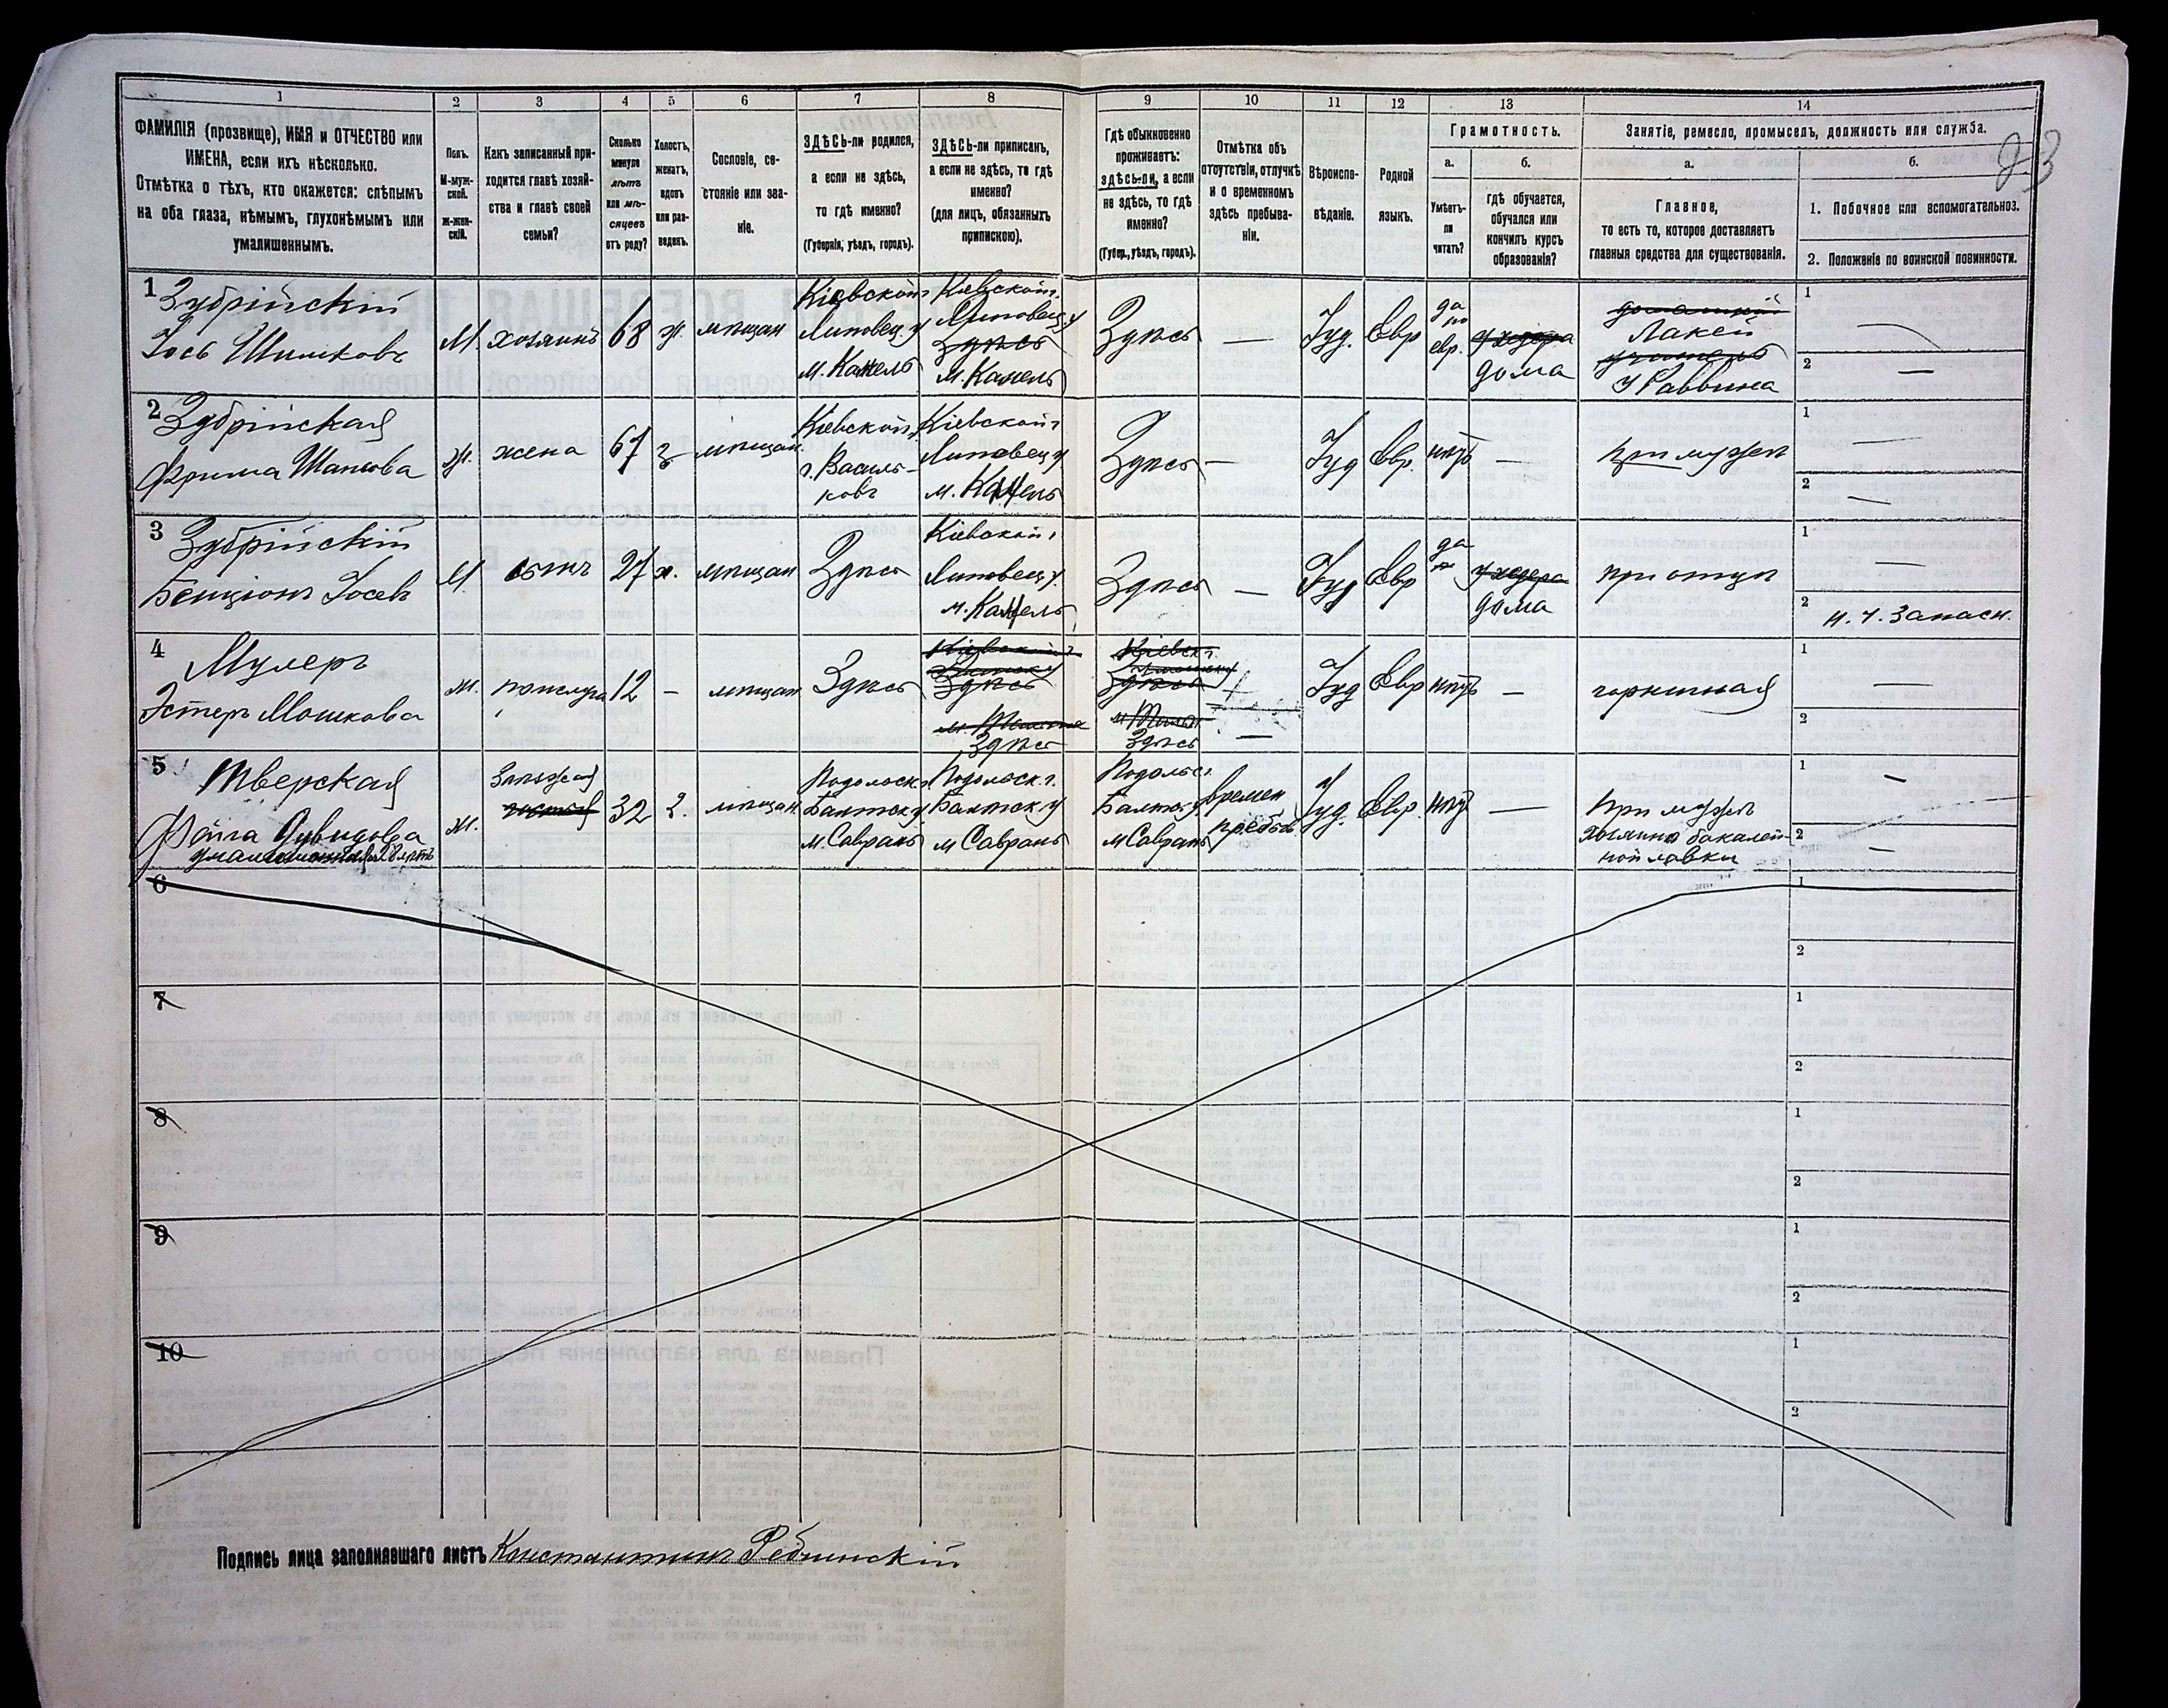 1 2 3 4 5 6 7 8 9 10 11 12 13 14
ФАМИЛІЯ (прозвище), ИМЯ и ОТЧЕСТВО или
ИМЕНА, если ихъ нѣсколько.
Отмѣтка о тѣхъ, кто окажется: слѣпымъ
на оба глаза, нѣмымъ, глухонѣмымъ или
умалишеннымъ.
Полъ.
М-муж-
ской.
Ж-жен-
скій.
Какъ записанный при-
ходится главѣ хозяй-
ства и главѣ своей
семьи?
Сколько
минуло
лѣтъ
или мѣ-
сяцевъ
отъ роду?
Холостъ,
женатъ,
вдовъ
или раз-
веденъ.
Сословіе, со-
стояніе или зва-
ніе.
ЗДѢСЬ-ли родился,
а если не здѣсь,
то гдѣ именно?
(Губернія, уѣздъ, городъ).
ЗДѢСЬ-ли приписанъ,
а если не здѣсь, то гдѣ
именно?
(для лицъ, обязанныхъ
припискою).
Гдѣ обыкновенно
проживаетъ:
здѣсь-ли, а если
не здѣсь, то гдѣ
именно?
(Губер., уѣздъ, городъ).
Отмѣтка объ
отсутствіи, отлучкѣ
и о временномъ
здѣсь пребыва-
ніи.
Вѣроиспо-
вѣданіе.
Родной
языкъ.
Грамотность.
а.
Умѣетъ-
ли
читать?
б.
гдѣ обучается,
обучался или
кончилъ курсъ
образованія?
Занятіе, ремесло, промыселъ, должность или служба.
а.
Главное,
то есть то, которое доставляетъ
главныя средства для существованія.
б.
1. Побочное или вспомогательноз.
2. Положеніе по воинской повинности.
23
1 Зубрійскій
Іось Шимковъ
М.
хозяинъ
68
ж.
мѣщан
Кіевской г
Липовец у
м. Кахель
Кіевской г.
Липовец у
Здѣсь
м. Кахель
Здѣсь
—
Іуд.
Евр
да
по
евр.
у хедера
дома
Лакей
учитель
У Раввина
1
2 —
2 Зубрійская
Фрима
Ж.
жена
67
з
мѣщан.
Кіевской г
г. Василь-
ковъ
Кіевской г
Липовец у
м. Кахель
Здѣсь
—
Іуд
Евр.
нѣтъ
—
При мужѣ
1 —
2 —
3 Зубрійскій
Бенціонъ Іосев
М.
сынъ
27
х.
мѣщан
Здѣсь
Кіевской г
Липовец у.
м. Кахель
Здѣсь
—
Іуд
Евр
да
у хедера
дома
при отцѣ
1 —
2 н. ч. Запасн.
4 Мулеръ
Эстеръ Мошкова
ж.
прислуга
12
—
мѣщан
Здѣсь
Здѣсь
Здѣсь
Здѣсь
Здѣсь
—
Іуд
Евр
нѣтъ
—
горничная
1 —
2
5 Тверская
Фейга Дувидова
ж.
Заѣзжая
гостья
32
З.
мѣщан.
Подольск. г
Балтск у
м. Саврань
Подольск. г.
Балтск. у
м Саврань
Подольс г
Балтск у.
м Саврань
Времен
пребыв
Іуд.
Евр.
нѣтъ
—
При мужѣ
хозяинъ бакалей-
ной лавки
1 —
2 —
6 1
2
7 1
2
8 1
2
9 1
2
10 1
2
Подпись лица заполнявшаго листъ Константинъ